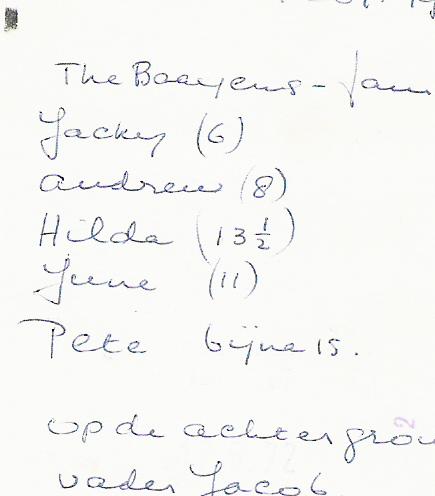 The Baayens - fam
Jacky (6)
Andrew (8)
Hilda (13 1/2)
June (11)
Pete bijna 15.
op de achtergrou
vader Jacob